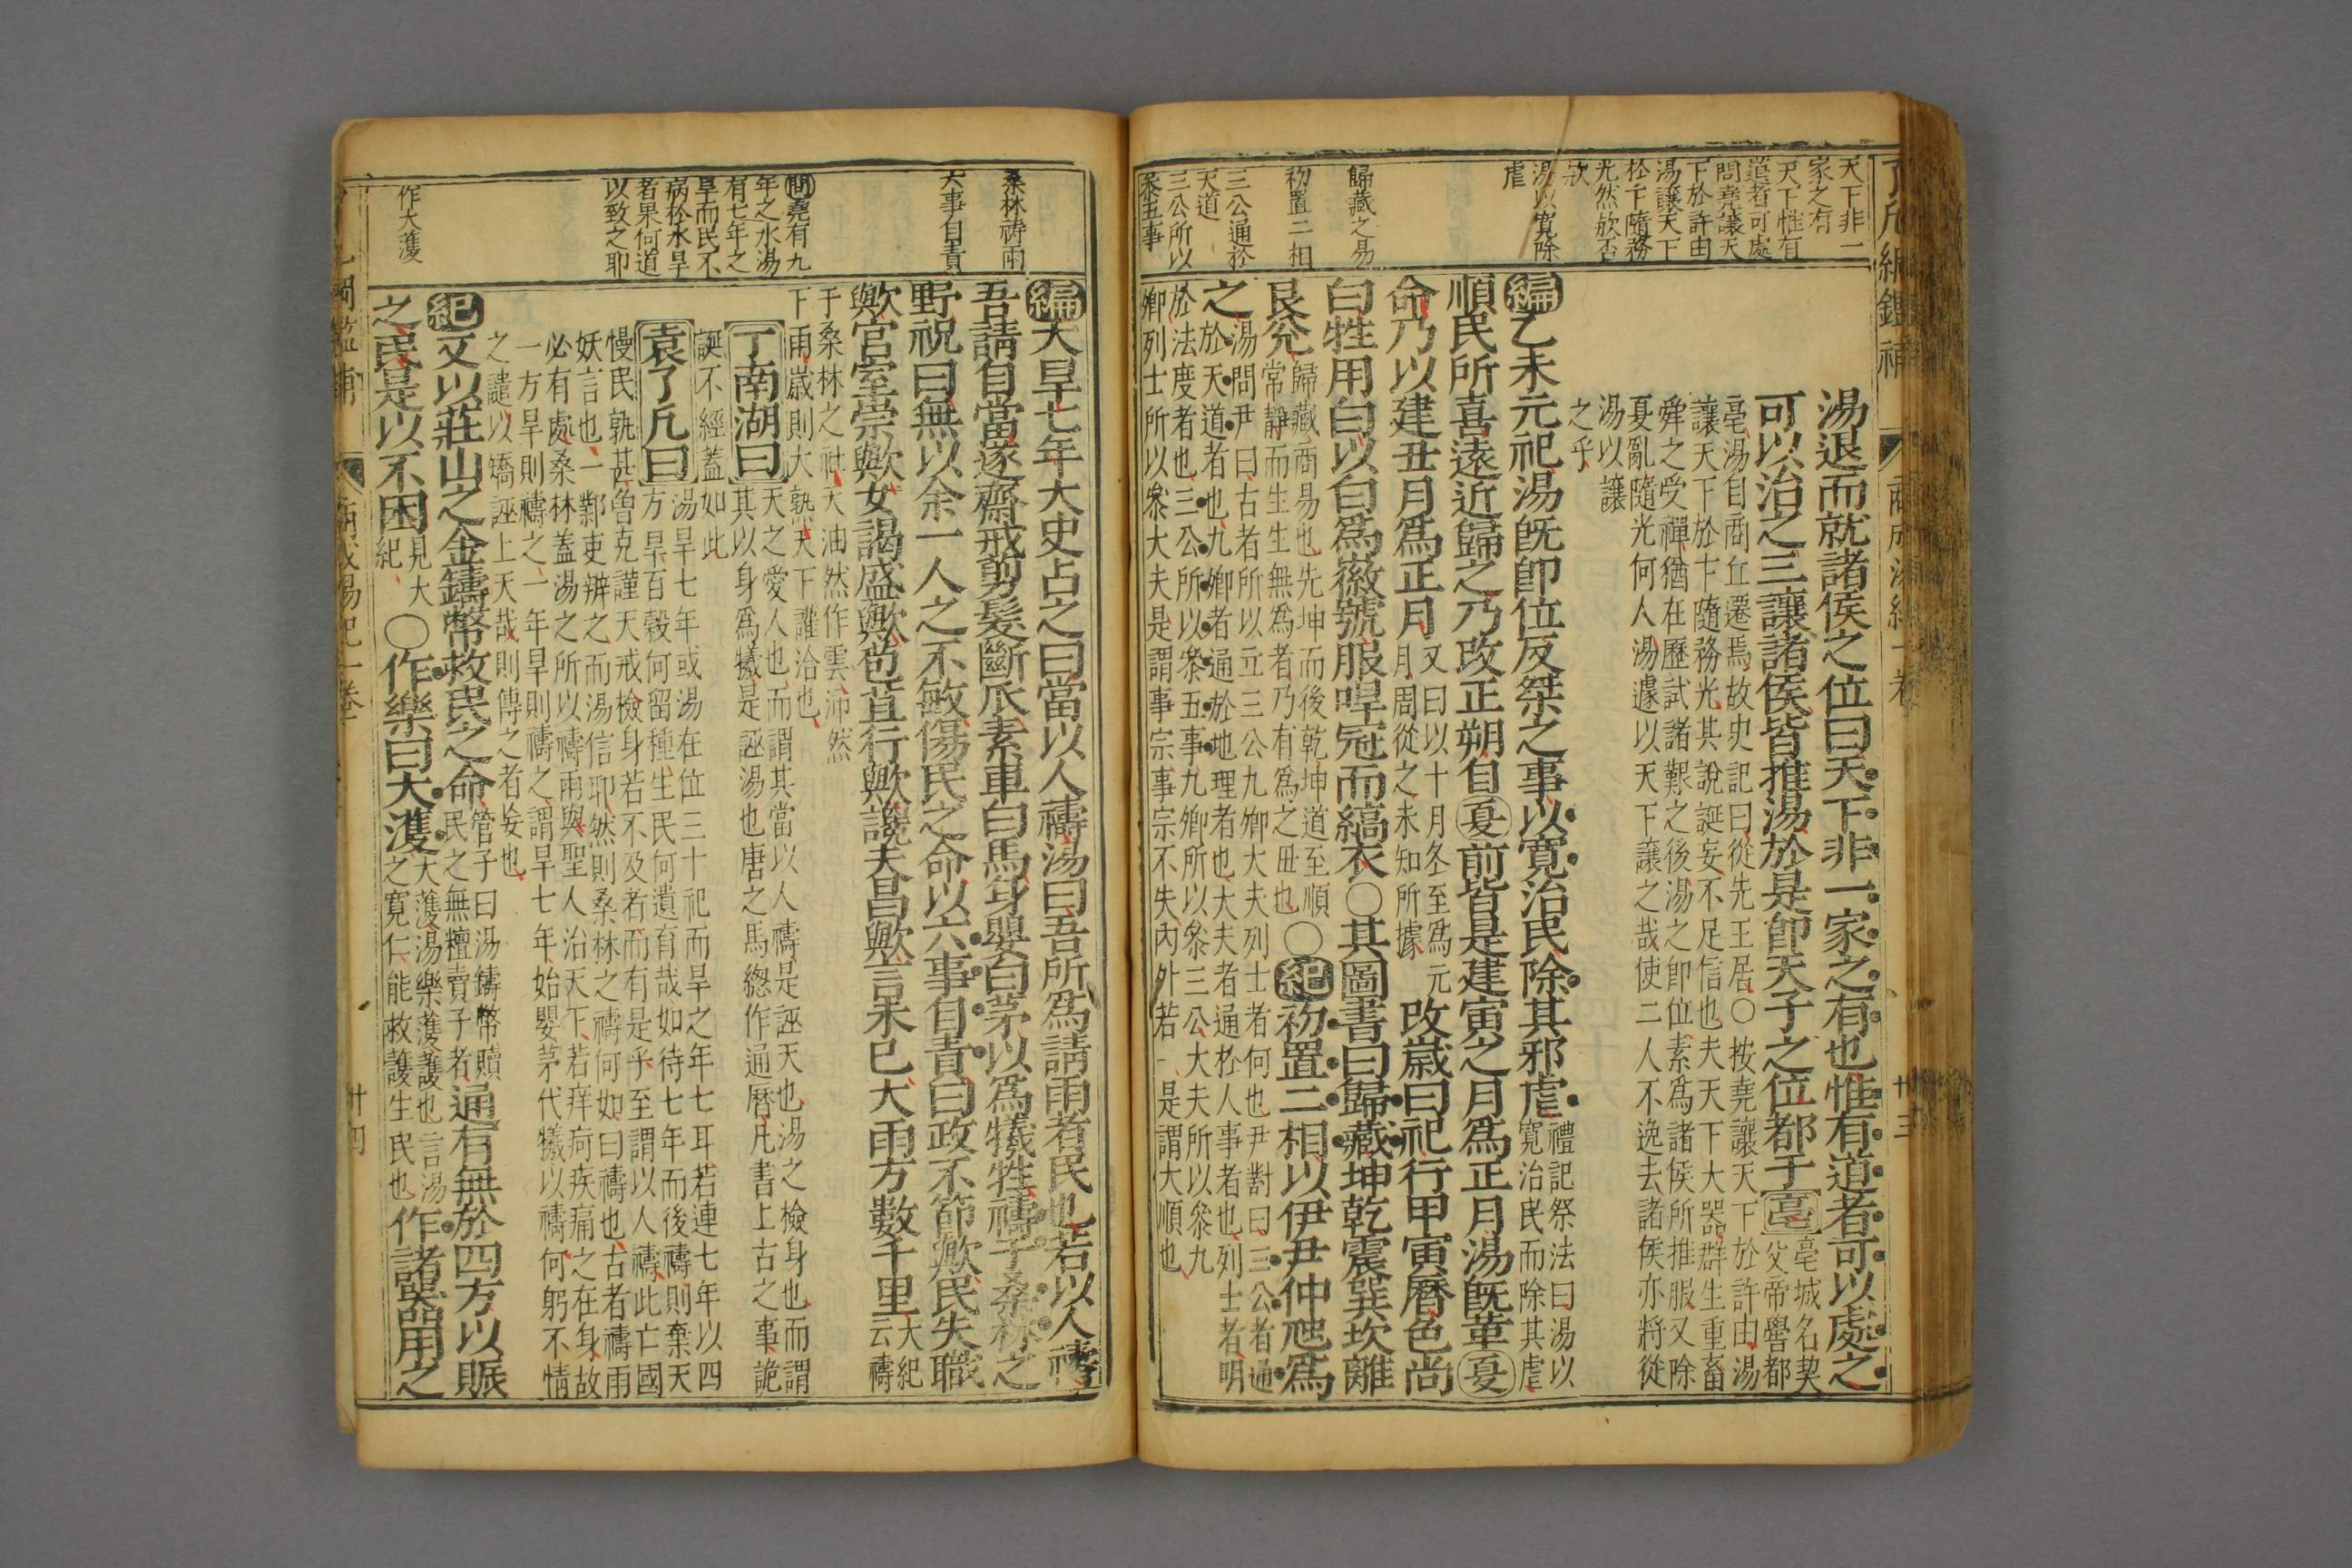 了凡綱鑑補
商成湯紀一卷
廿三
天下非一
家之有
天下惟有
道者可處
問堯讓天
下於許由
湯讓天下
於卞隨務
光然歟否
歟
湯以寬除
虐
歸藏之易
初置二相
三公通於
天道
三公所以
參五事
湯退而就諸侯之位曰天下非一家之有也惟有道者可以處之
可以治之三讓諸侯皆推湯於是卽天子之位都于亳
亳城名契
父帝嚳都
亳湯自商丘遷焉故史記曰從先王居○按堯讓天下於許由湯
讓天下於卞隨務光其說誕妄不足信也夫天下大器群生重畜
舜之受禪猶在歷試諸艱之後湯之卽位素爲諸侯所推服又除
夏亂隨光何人湯遽以天下讓之哉使二人不逸去諸侯亦將從
湯以讓
之乎
編乙未元祀湯旣卽位反桀之事以寬治民除其邪虐
禮記祭法曰湯以
寬治民而除其虐
順民所喜遠近歸之乃改正朔自夏前皆是建寅之月爲正月湯旣革夏
命乃以建丑月爲正月
又曰以十月冬至爲元
月周從之未知所據
改歲曰祀行甲寅曆色尚
白牲用白以白爲徽號服哻冠而縞衣○其圖書曰歸藏坤乾震巽坎離
艮兊
歸藏商易也先坤而後乾坤道至順
常靜而生生無爲者乃有爲之毌也
○紀初置二相以伊尹仲虺爲
之
湯問尹曰古者所以立三公九卿大夫列士者何也尹對曰三公者通
於天道者也九卿者通於地理者也大夫者通於人事者也列士者明
於法度者也三公所以參五事九卿所以參三公大夫所以參九
卿列士所以參大夫是謂事宗事宗不失內外若一是謂大順也
桑林禱雨
六事自責
問堯有九
年之水湯
有七年之
旱而民不
病於水旱
者果何道
以致之耶
作大濩
編大旱七年大史占之曰當以人禱湯曰吾所爲請雨者民也若以人禱
吾請自當遂齋戒剪髮斷爪素車白馬身嬰白茅以爲犧牲禱于桑林之
野祝曰無以余一人之不敏傷民之命以六事自責曰政不節歟民失職
歟宮室崇歟女謁盛歟苞苴行歟讒夫昌歟言未已大雨方數千里
大紀
云禱
于桑林之社天油然作雲沛然
下雨歲則大熟天下讙洽也
丁南湖曰
天之愛人也而謂其當以人禱是誣天也湯之檢身也而謂
其以身爲犧是誣湯也唐之馬緫作通曆凡書上古之事詭
誕不經蓋如此
袁了凡曰
湯旱七年或湯在位三十祀而旱之年七耳若連七年以四
方旱百穀何留種生民何遺育哉如待七年而後禱則棄天
慢民孰甚魯克謹天戒檢身若不及者而有是乎至謂以人禱此亡國
妖言也一鄴吏辦之而湯信耶然則桑林之禱何如曰禱也古者禱雨
必有處桑林蓋湯之所以禱雨與聖人治天下若痒疴疾痛之在身故
一方旱則禱之一年旱則禱之謂旱七年始嬰茅代犧以禱何躬不情
之譴以矯誣上天哉則傳之者妄也
紀又以莊山之金鑄幣救民之命
管子曰湯鑄幣贖
民之無𥼷賣子者
通有無於四方以賑
之民是以不困
見大
紀
○作樂曰大濩
大濩湯樂濩護也言湯
之寬仁能救護生民也
作諸器用之
凡綱鑑補
商成湯紀一卷
廿四